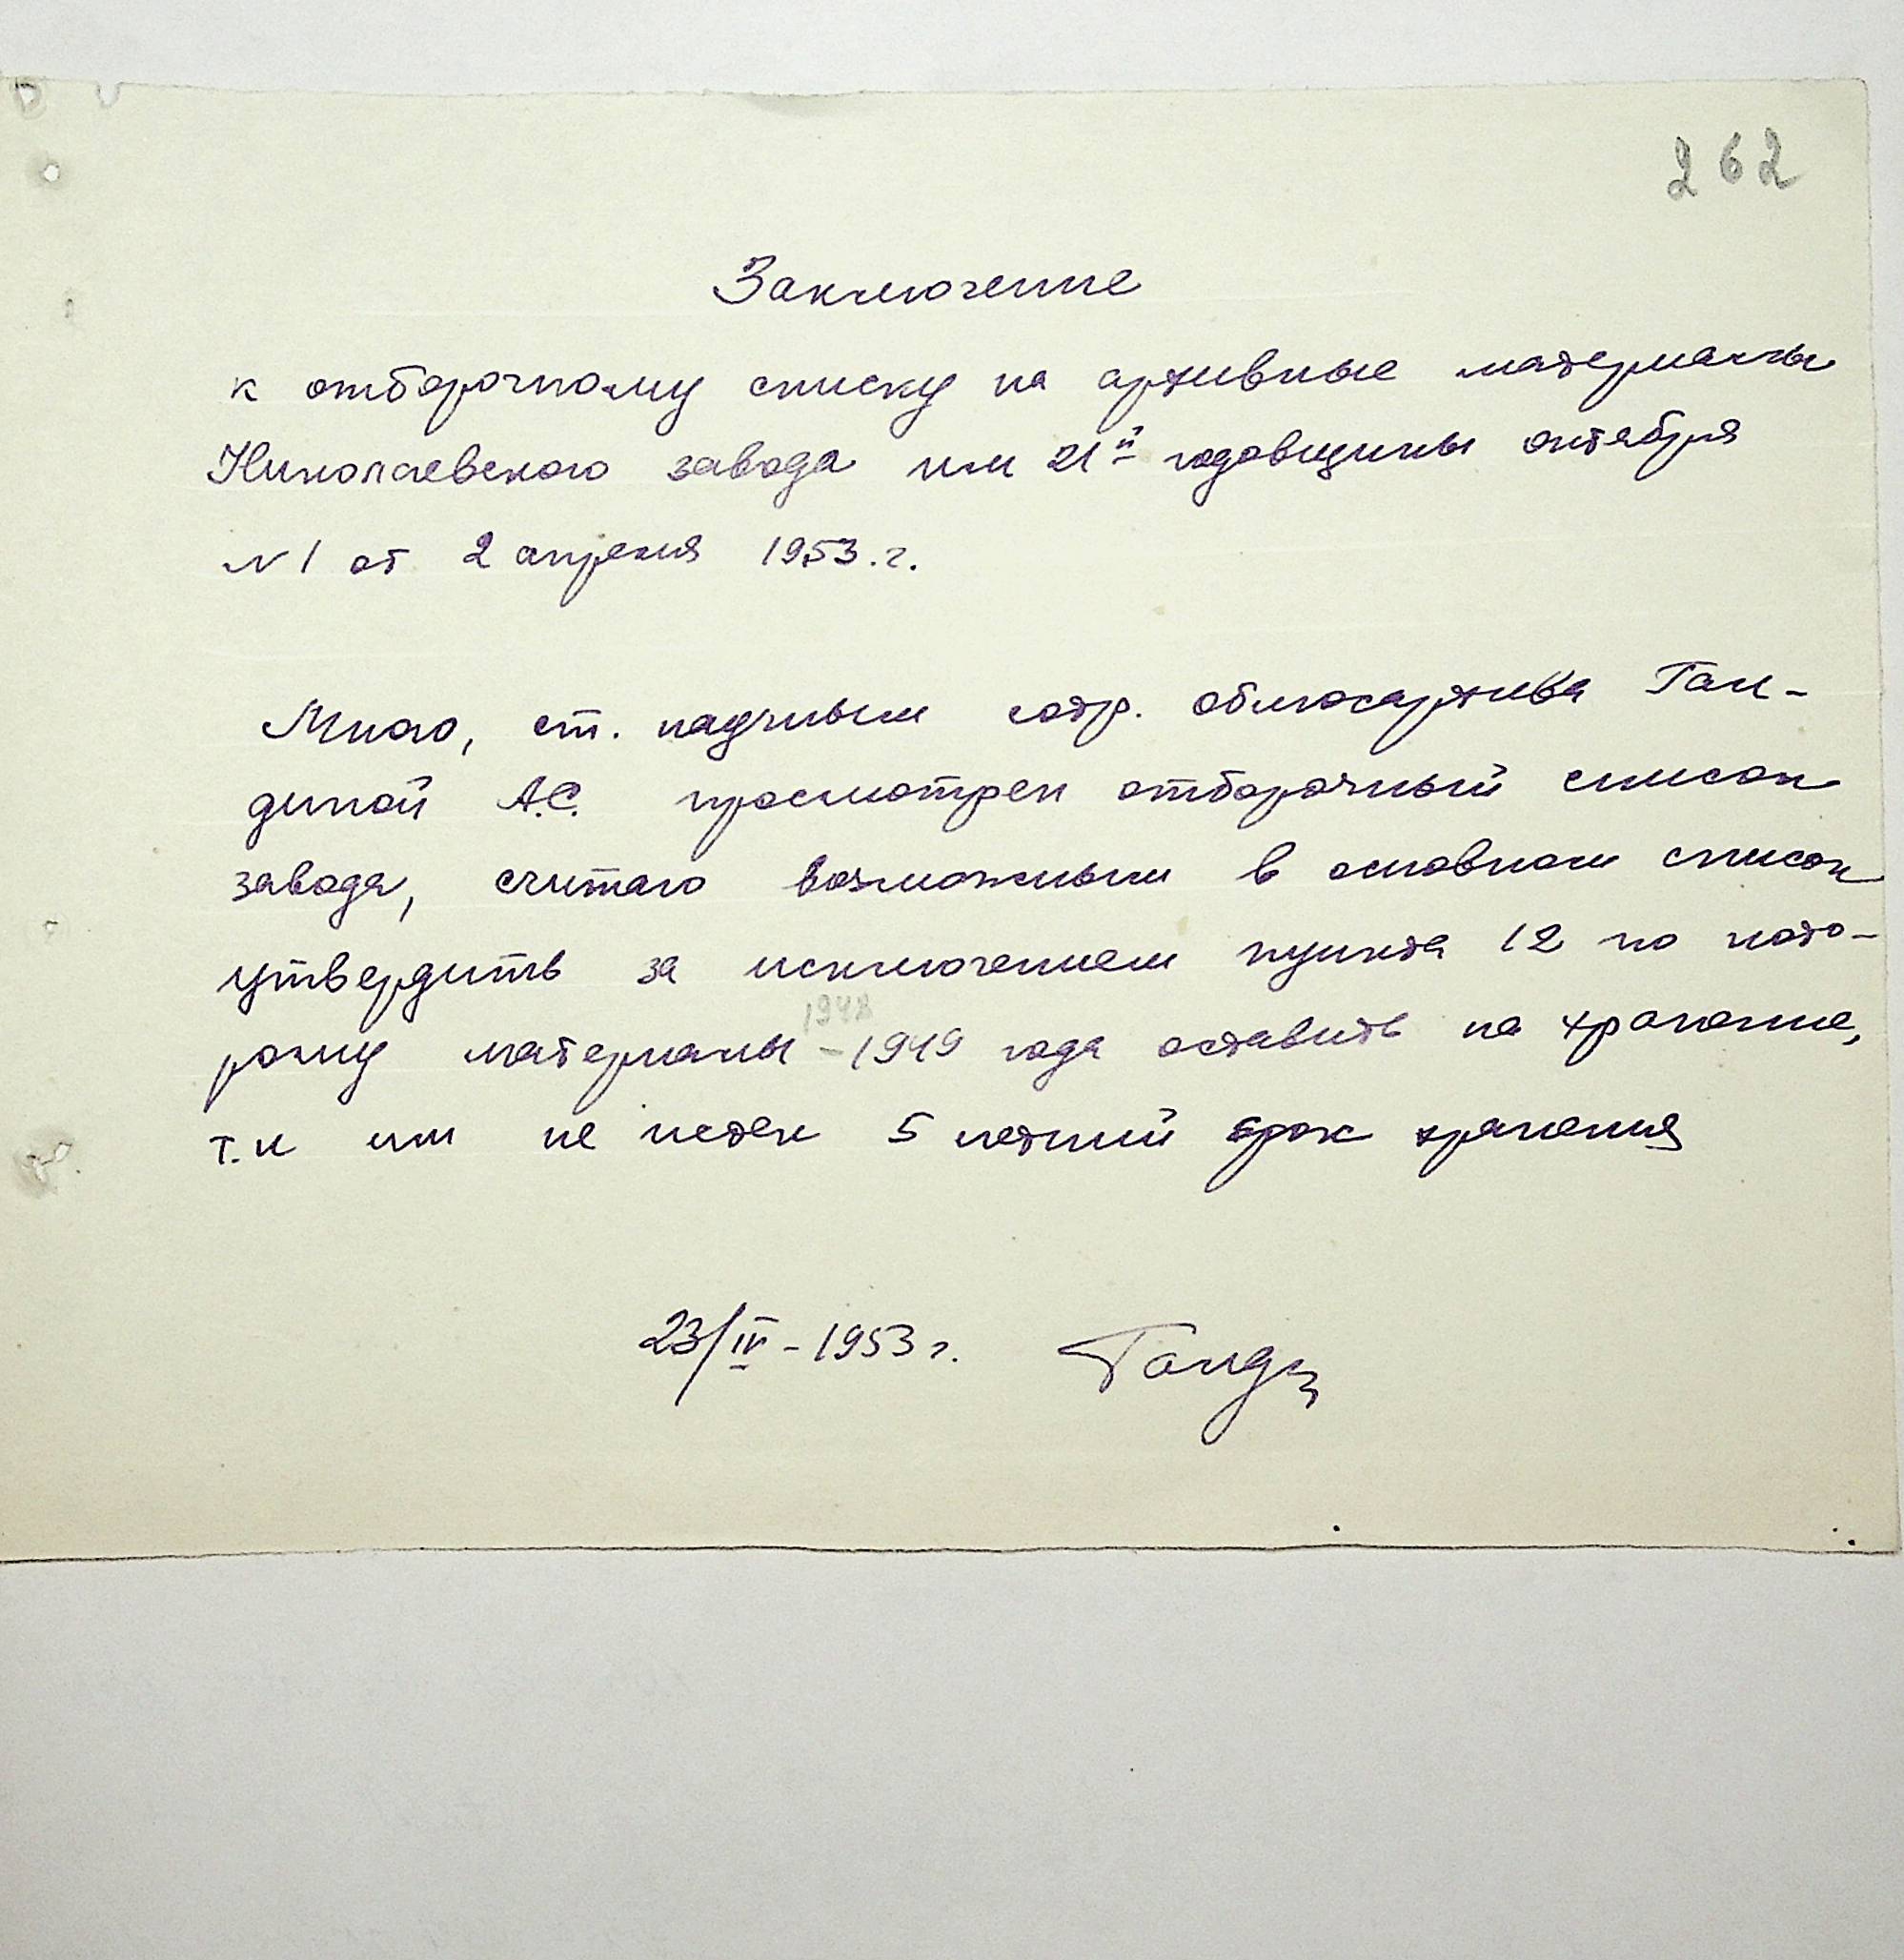 262
Заключение
к отборочному списку на архивные материалы
Николаевского завода им 21й годовщины октября
N 1 от 2 апреля 1953.г.
Мною, ст. научным сотр. облгосархива Ган-
диной А.С. просмотрен отборочный список
завода, считаю возможным в основном список
утвердить за исключением пункта 12 по кото-
1948
рому материалы - 1949 года оставить на хранение,
т.к им не истек 5 летний срок хранения
23/IV - 1953 г.